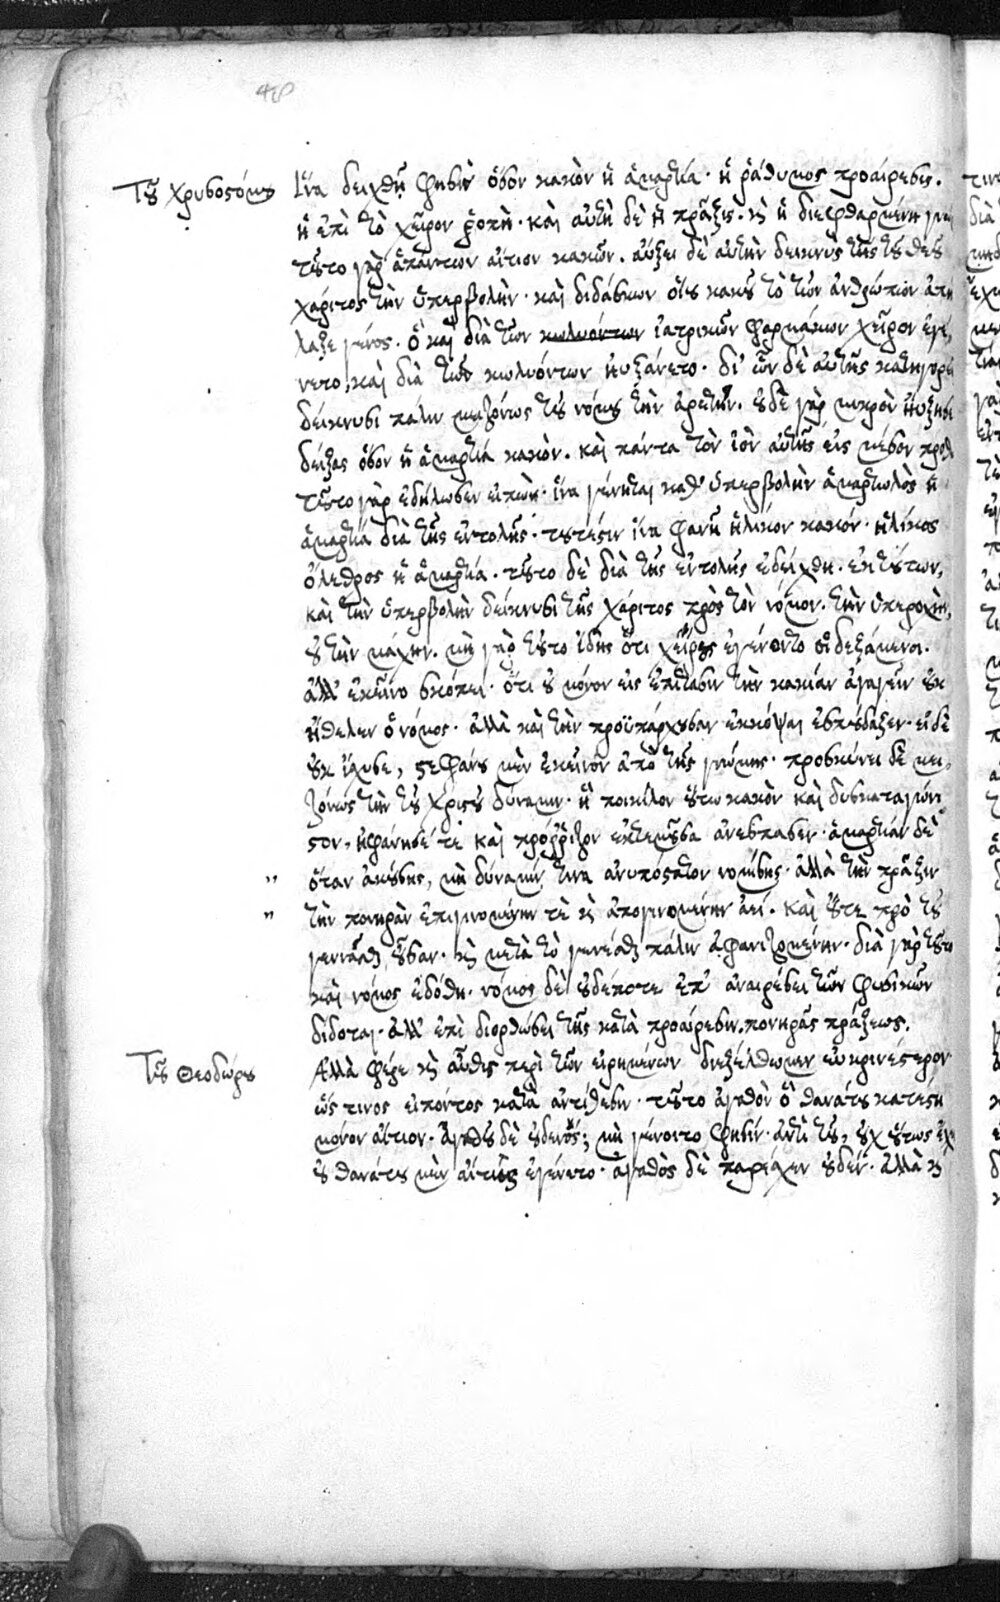 Τοῦ Χρυσοστόμου
Ἵνα δειχθῇ φησὶν ὅσον κακὸν ἡ ἁμαρτία· ἡ ῥάθυμος προαίρεσις.
ἡ ἐπὶ τὸ χεῖρον ῥοπὴ· καὶ αὐτὴ δὲ ἡ πρᾶξις. καὶ ἡ διεφθαρμένη γνώ
τοῦτο γὰρ ἁπάντων αἴτιον κακῶν. αὔξει δὲ αὐτὴν δεικνὺς τῆς τοῦ θεοῦ
χάριτος τὴν ὑπερβολὴν· καὶ διδάσκων οἵου κακοῦ τὸ τῶν ἀνθρώπων ἀπήλ
λαξε γένος. ὃ καὶ διὰ τῶν κωλυόντων ἰατρικῶν φαρμάκων χεῖρον ἐγί,
νετο, καὶ διὰ τῶν κωλυόντων ηὐξάνετο· δι' ὧν δὲ αὐτῆς κατηγορεῖ
δείκνυσι πάλιν μειζόνως τοῦ νόμου τὴν ἀρετὴν. οὐδὲ γὰρ μικρὸν ἤνυσε
δείξας ὅσον ἡ ἁμαρτία κακὸν. καὶ πάντα τὸν ἰὸν αὐτῆς εἰς μέσον προθεὶς
τοῦτο γὰρ ἐδήλωσεν εἰπὼν· ἵνα γένηται καθ' ὑπερβολὴν ἁμαρτωλὸς ἡ
ἁμαρτία διὰ τῆς ἐντολῆς· τουτέστιν ἵνα φανῇ ἡλίκον κακόν· ἡλίκος
ὄλεθρος ἡ ἁμαρτία. τοῦτο δὲ διὰ τῆς ἐντολῆς ἐδείχθη. ἐκ τούτων,
καὶ τὴν ὑπερβολὴν δείκνυσι τῆς χάριτος πρὸς τὸν νόμον. τὴν ὑπεροχὴν,
οὐ τὴν μάχην. μὴ γὰρ τοῦτο ἴδῃς ὅτι χείρους ἐγένοντο οἱ δεξάμενοι.
ἀλλ' ἐκεῖνο σκόπει· ὅτι οὐ μόνον εἰς ἐπίτασιν τὴν κακίαν ἀγαγεῖν οὐκ
ἤθελεν ὁ νόμος. ἀλλὰ καὶ τὴν προϋπάρχουσαν ἐκκόψαι ἐσπούδαξεν· εἰ δὲ
οὐκ ἴσχυσε, στεφάνου μὲν ἐκεῖνον ἀπὸ τῆς γνώμης. προσκύνει δὲ μει,
ζόνως τὴν τοῦ Χριστοῦ δύναμιν· ἣ ποικίλον οὕτω κακὸν καὶ δυσκαταγώνι
στον, ἠφάνισέ τε καὶ πρόρριζον ἐκτεμοῦσα ἀνέσπασεν· ἁμαρτίαν δὲ
ὅταν ἀκούσῃς, μὴ δύναμίν τινα ἀνυπόστατον νομίσῃς. ἀλλὰ τὴν πρᾶξιν
τὴν πονηρὰν ἐπιγινομένην τὲ καὶ ἀπογινομένην ἀεί. καὶ οὔτε πρὸ τοῦ
γενέσθαι οὖσαν. καὶ μετὰ τὸ γενέσθαι πάλιν ἀφανιζομένην. διὰ γὰρ τοῦτο
καὶ νόμος ἐδόθη. νόμος δὲ οὐδέποτε ἐπ' ἀναιρέσει τῶν φυσικῶν
δίδοται. ἀλλ' ἐπὶ διορθώσει τῆς κατὰ προαίρεσιν πονηρᾶς πράξεως.
Τοῦ Θεοδώρου
Ἀλλὰ φέρε καὶ αὖθις περὶ τῶν εἰρημένων διεξέλθωμεν εὐκρινέστερον
ὥς τινος εἰπόντος κατὰ ἀντίθεσιν. τοῦτο ἀγαθὸν ὃ θανάτου κατέστη
μόνον αἴτιον. ἀγαθοῦ δὲ οὐδενός; μὴ γένοιτο φησίν. ἀντὶ τοῦ, οὐχ οὕτως ἔχει
οὐ θανάτου μὲν αἴτιος ἐγένετο. ἀγαθὸς δὲ παρέσχεν οὐδέν. ἀλλὰ καὶ